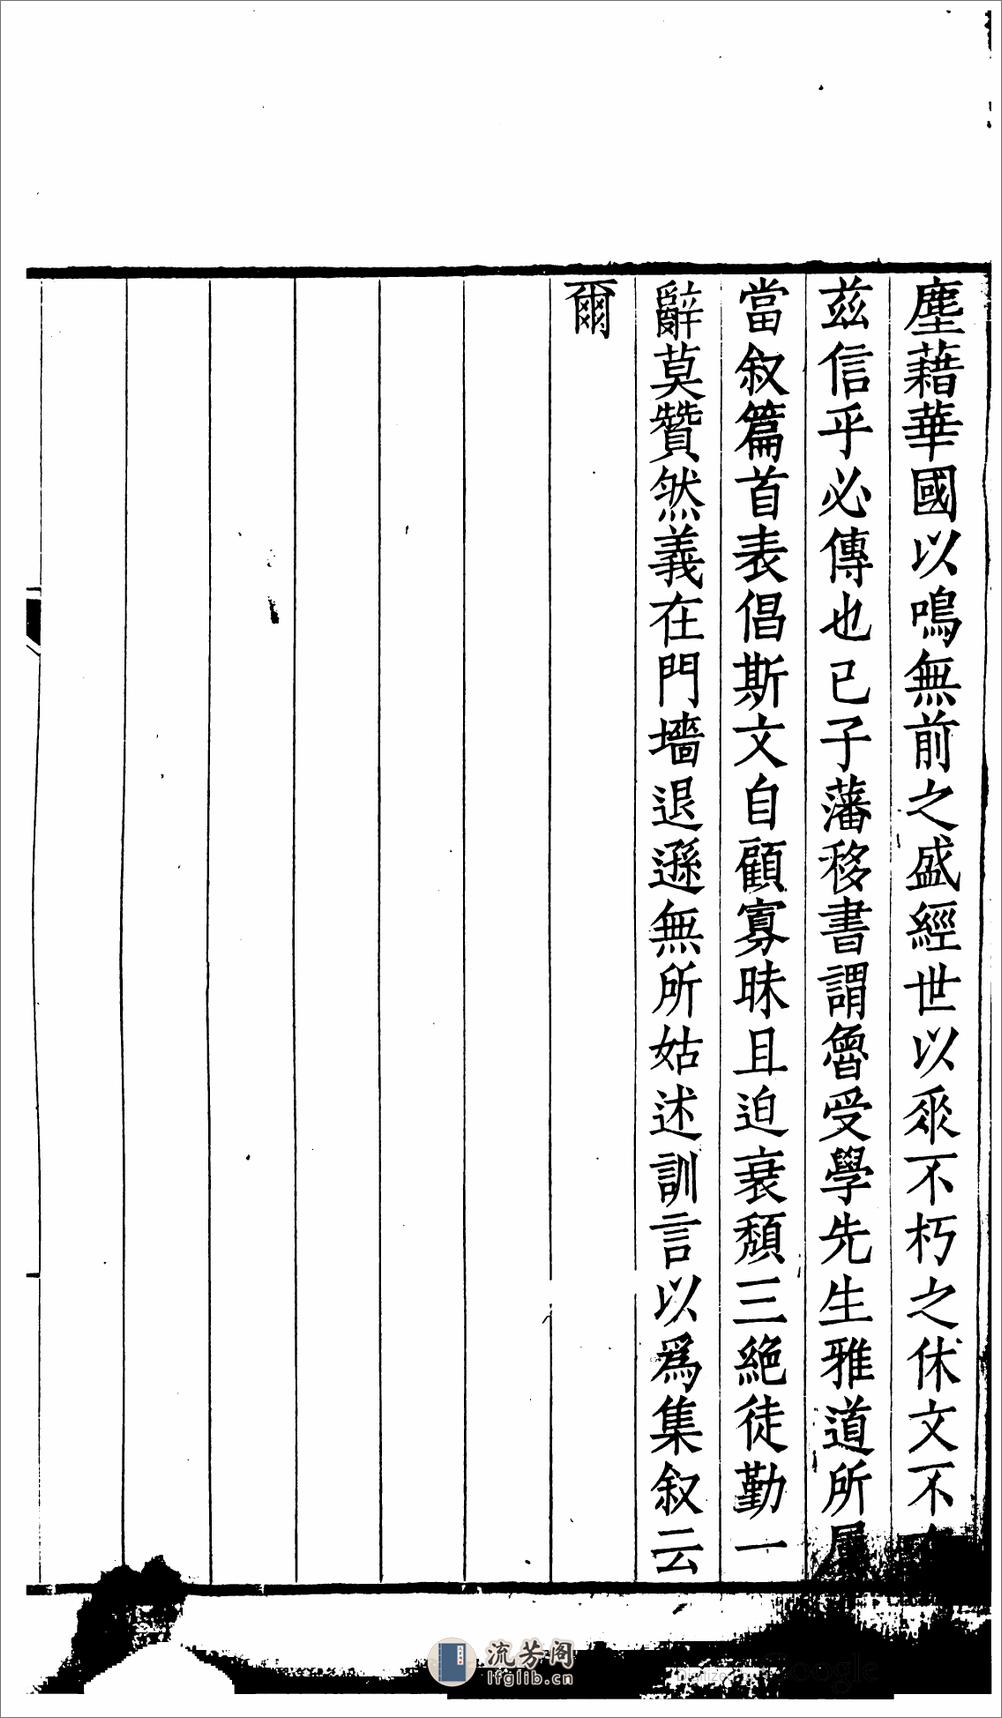 塵藉華國以鳴無前之盛經世以乑不朽之休文不
茲信乎必傳也已子藩移書謂魯受學先生雅道所屬
當叙篇首表倡斯文自顧寡昧且迫衰頹三絕徒勤一
辭莫贊然義在門墻退遜無所姑述訓言以爲集叙云
爾
流芳阁
lfglib.cn
Google